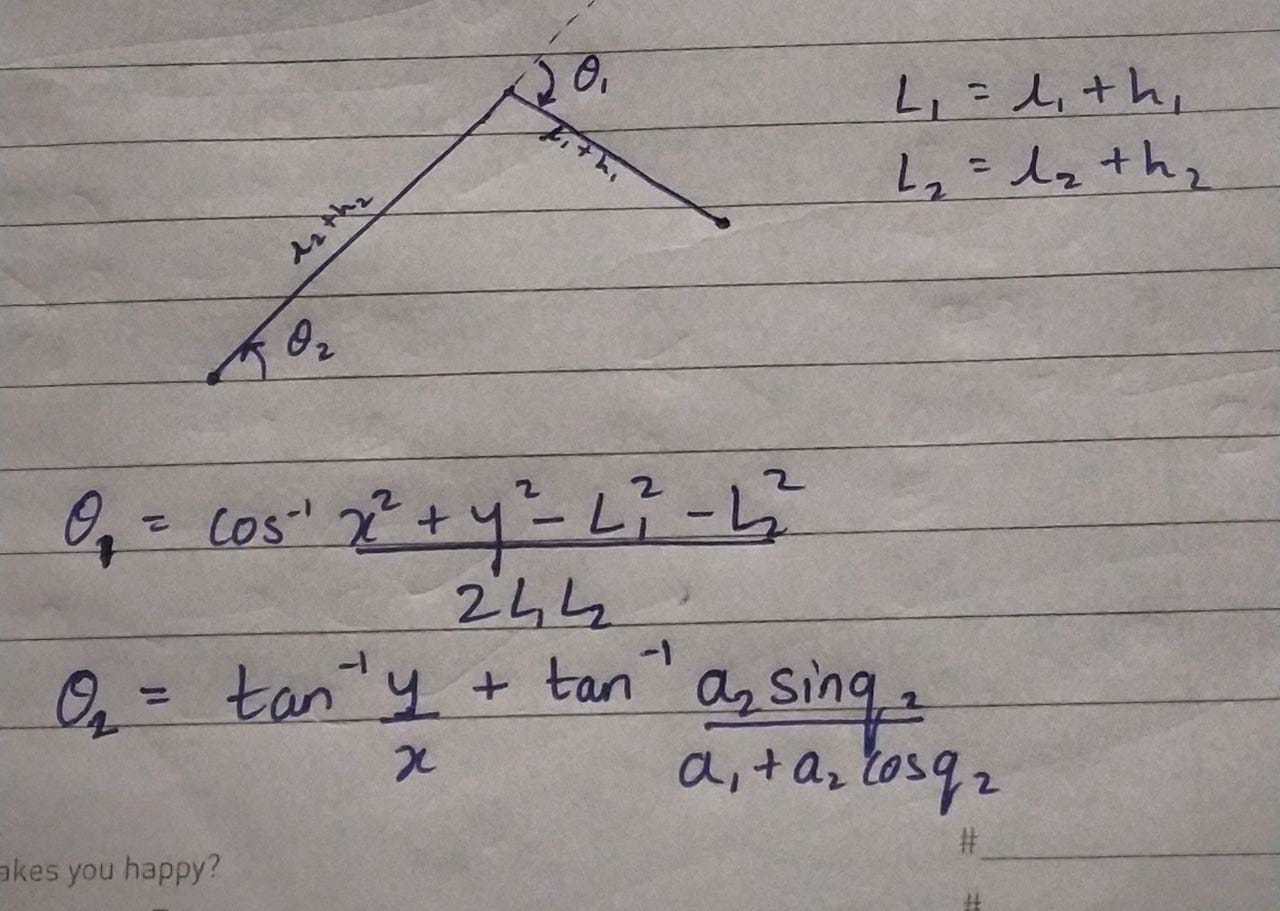 θ₁
L₁ = l₁ + h₁
l₁ + h₁
L₂ = l₂ + h₂
l₂+h₂
θ₂
θ₁ = cos⁻¹ x² + y² - L₁² - L₂²
2L₁L₂
θ₂ = tan⁻¹ y + tan⁻¹ a₂ sinq₂
x a₁ + a₂ cosq₂
#
akes you happy?
#